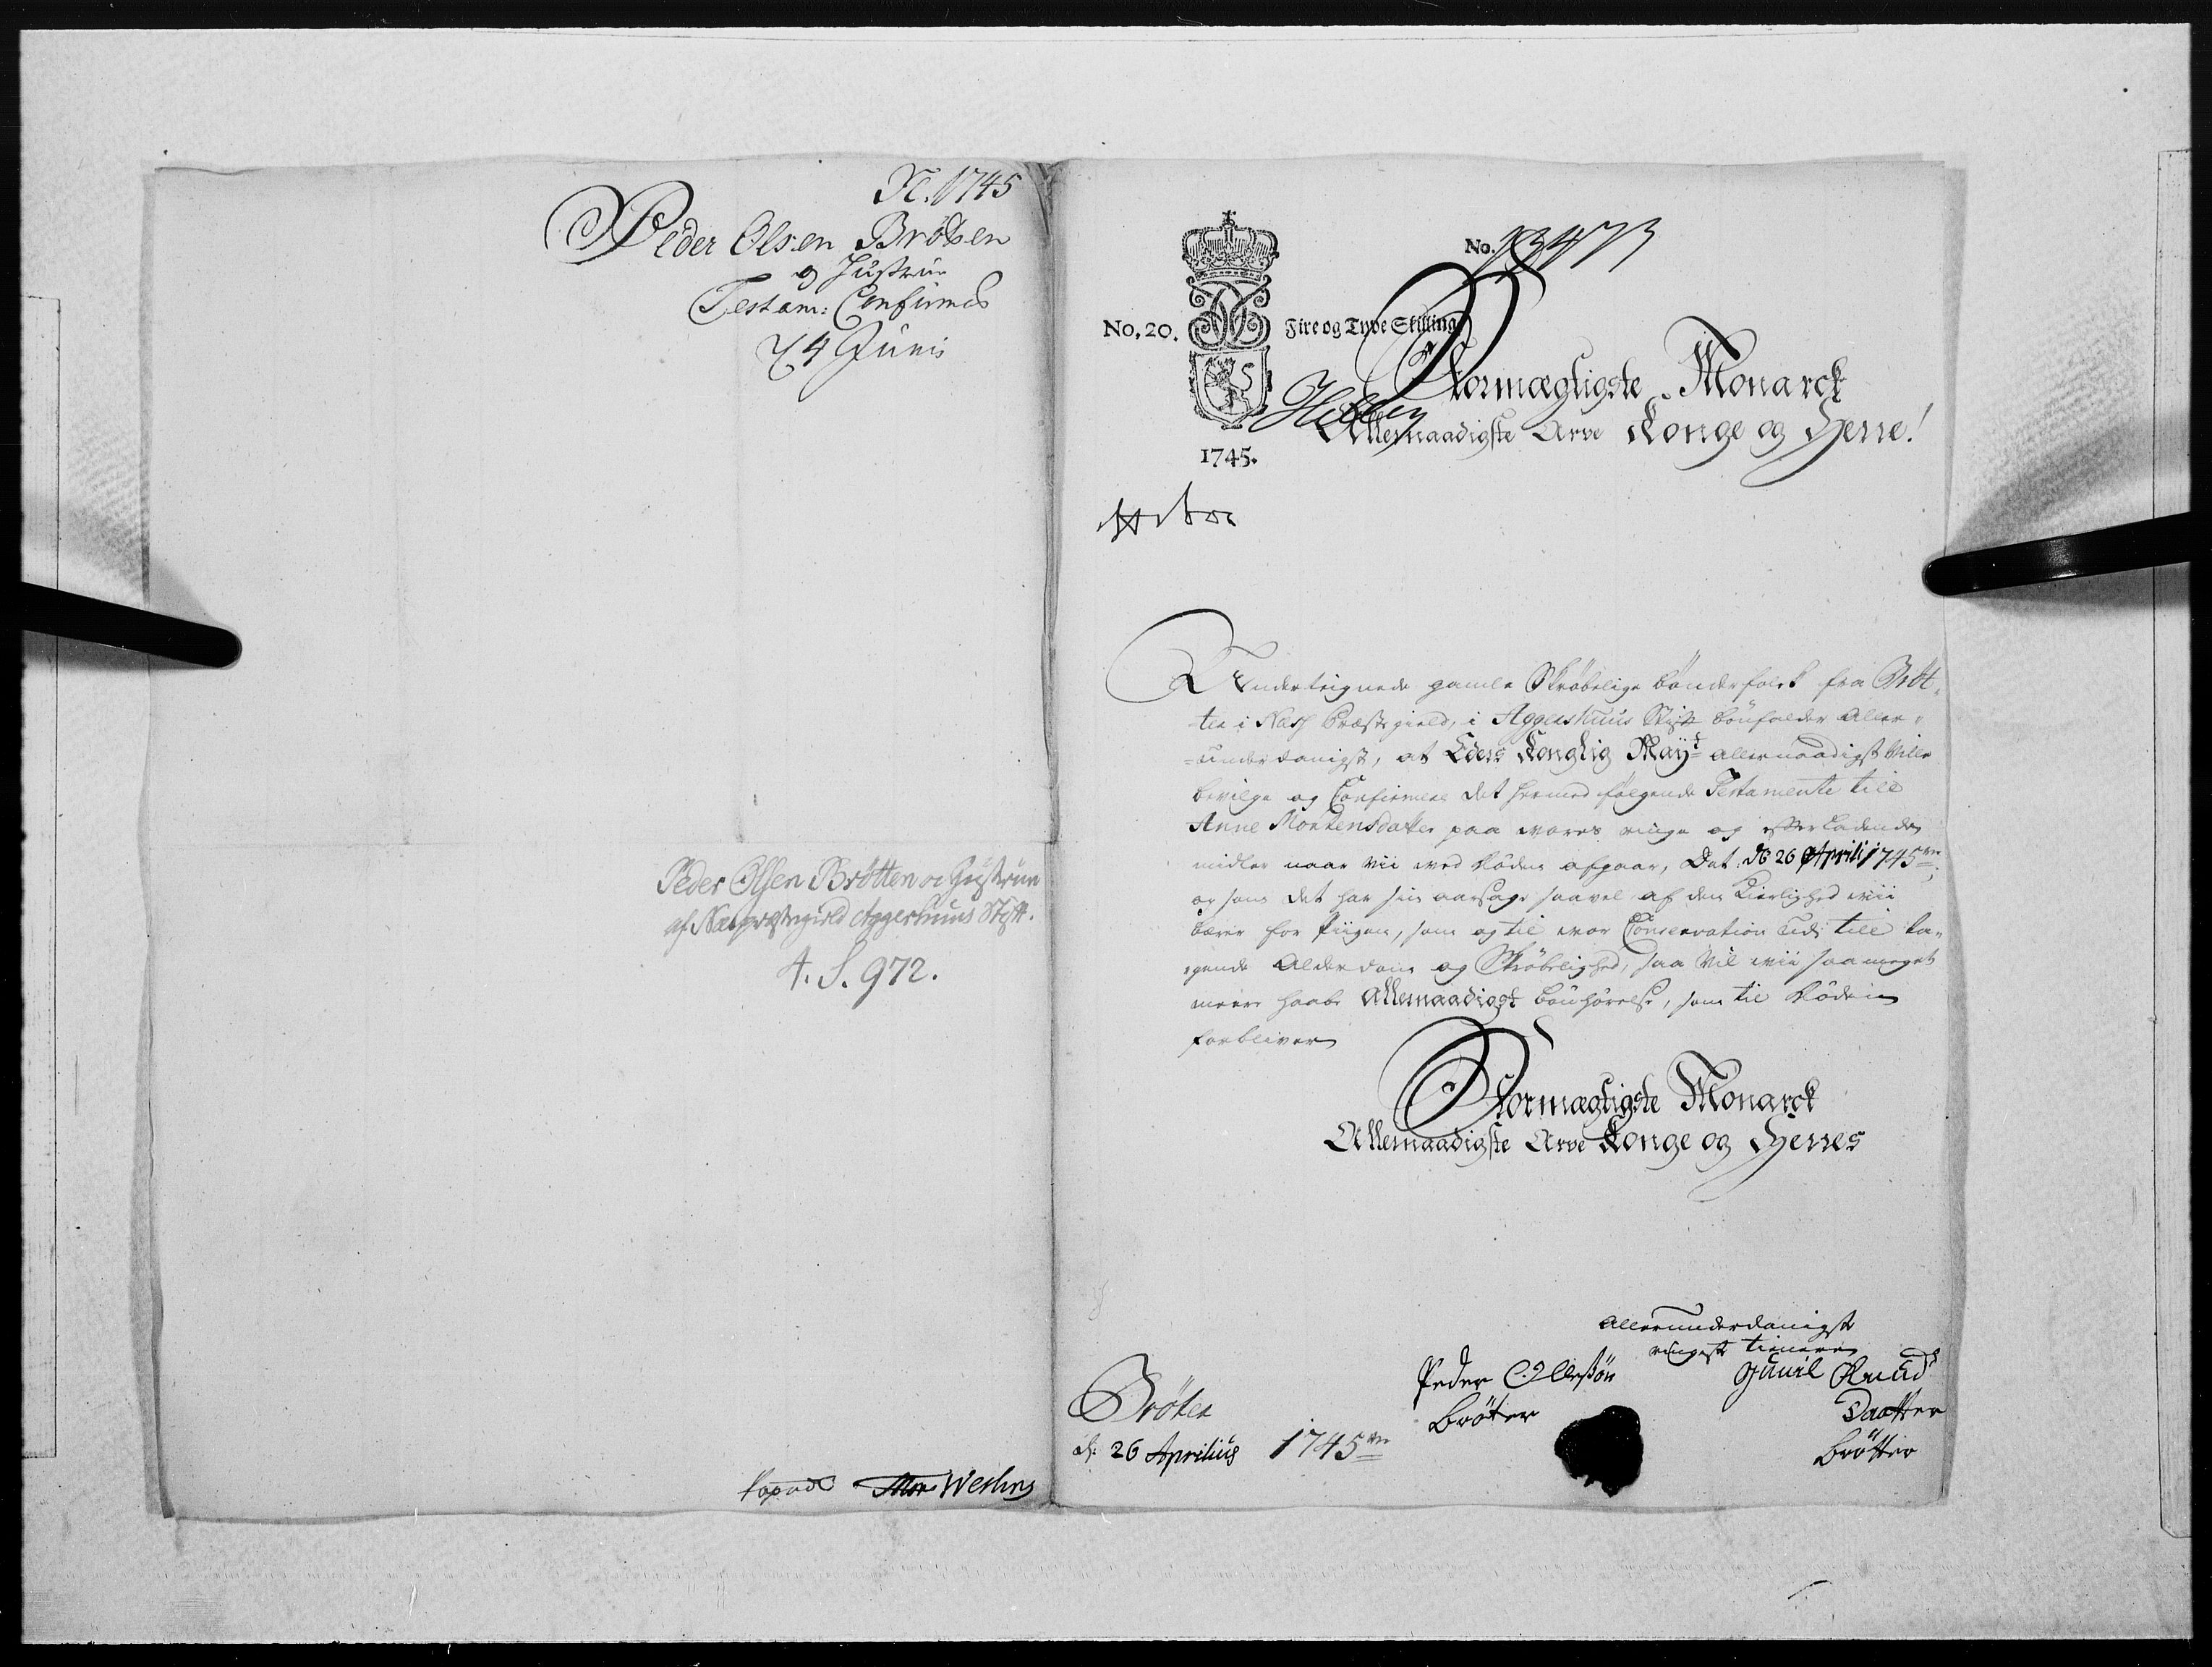 N. 1745
Peder Olsen Bröten
og Hustrue
Testam: Confirmas
4 Junii
Peder Olsen Brötten og Hustrue
af Næs præstegield Aggershuus Stift.
A. S. 972.
Mons Werlins
No. 13473
No. 20. Fire og Tyve Skilling
Stormægtigste Monarck
Allernaadigste Arve Konge og Herre!
1745.
Underteignede gamle Skröbelige bönderfolck fra Bröt-
ten i Næss Præstegield, i Aggershuus Stift bönfalder Aller-
underdanigst, at Eders Konglig Mayt allernaadigst Ville
bevilge og Confirmere det hermed følgende Testamente till
Anne Mortensdatter paa vores ringe og efterladende
midler naar vii ved Döden afgaar, Dat. d: 26 Aprili 1745
og som det har sin aarsage saavel af den Kierlighed vii
bærer for Piigen, som og til vor Conservation udi till ta-
gende Alderdom og Skröbelighed, saa Vil vii saa meget
meere haabe Allernaadigst bönhörelse, som til Döden
forbliver
Stormægtigste Monarck
Allernaadigste Arve Konge og Herres
Allerunderdanigste
ringeste tienere
Peder Ollessön
Bröter
Gunil Knud
Daatter
Brötter
Bröten
d: 26 Aprilius 1745